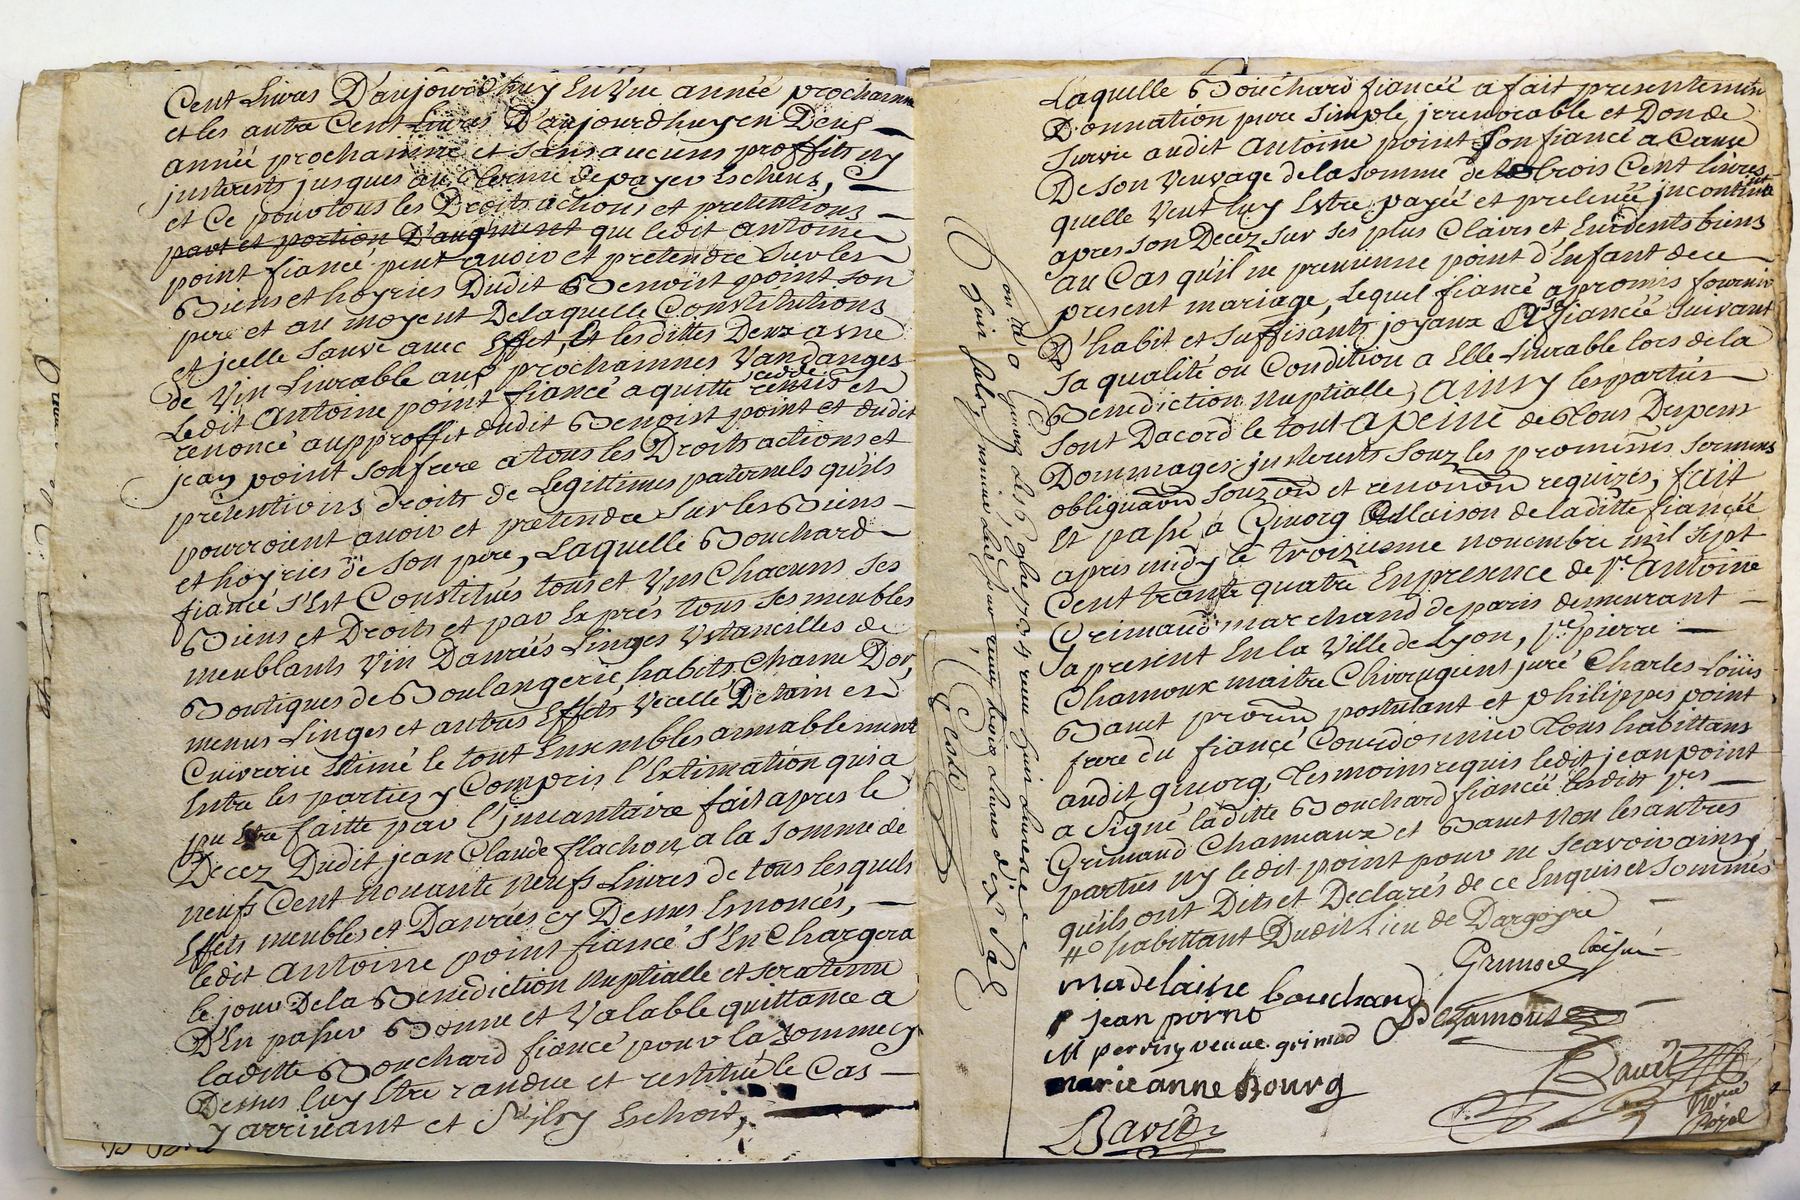 Cent Livres D'aujourdhuy En Vne année prochainne
et les autre Cent Livres D'aujourdhuy en Deux
année prochainne et sans aucuns proffits ny
jnterests jusques au Terme de payer Escheus,
et Ce pour tous les Droits actions et pretentions
part et portion D'augment que ledit antoine
point fiancé peut auoir et pretendre sur les
Biens et hoyries Dudit Benoist point son
pere et au moyent De laquelle Constitutions
et jcelle sauve auec Effet, Et lesdittes Deux asné
de Vin Livrable aux prochainnes Vandanges
Ledit Antoine point fiancé a quitté cedé remis et
renoncé au proffit dudit Benoist point et dudit
jean point son frere a tous les Droits actions et
prétentions droits de Legittimes paternels qu'ils
pourroient auoir et pretendre sur les Biens
et hoyries de son pere, Laquelle Bouchard
fiancé s'Est Constitués tous et Vns Chacuns ses
Biens et Droits et par Exprés tous ses meubles
meublants Vin Danrées Linges Vstancilles de
Boutiques de Boulangerie, habits, Chaine Dor,
menus Linges et autres Effets Vecelle D'etain et
Cuivrerie Estimé le tout Ensembles amiablement
Entre les parties y Compris l'Estimation qui a
pu Estre faitte par l'jnuantaire fait apres le
Decez Dudit jean Claude flachon a la somme de
neufs Cent nouante neufs Livres de tous lesquels
Effets meubles et Danrées cy Dessus Enoncés,
ledit antoine point fiancé s'En Chargera
le jour De la Benediction nuptialle et sera tenu
D'En passer Bonne et Valable quittance a
laditte Bouchard fiancé pour la somme cy
Dessus luy Estre randue et restitué le Cas
y arrivant et s'jl y Eschoit,
Laquelle Bouchard fiancéé a fait presentement
Donnation pure simple jrreuocable et Don de
survie audit Antoine point son fiancé a Cause
De son Veuvage de la somme de trois Cent livres
quelle Veut luy Estre payéé et preleuéé jncontinent
apres son Decez sur ses plus Clairs et Euidents biens
au Cas qu'il ne prouienne point d'Enfant de ce
present mariage, Lequel fiancé a promis fournir
D'habit et suffisants joyaux a sa fiancéé suivant
sa qualité ou Condition a Elle Livrable lors de la
Benediction nuptialle, Ainsy les partiés
sont Dacord le tout A peine de Tous Despens
Dommages jnterests souz les promisses sermens
obligaon souzon et renonon requizes, fait
et passé a Givorg Maison de laditte fiancéé
apres midy le troizieme nouembre mil sept
Cent trante quatre En presence de Sr. Antoine
Grimaud marchand de paris demeurant
a present En la Ville de Lyon, Sr. pierre
Chamoux maitre Chirrugient juré Charles Loüis
Bauet procur postulant et philippes point
frere du fiancé Courdonnier Tous habittans
audit givorg, Tesmoins requis ledit jean point
a signé laditte Bouchard fiancéé lesdits srs
Grimaud Chameaux et Bauet non les autres
parties ny ledit point pour ne scavoir ainsy
qu'ils ont Dits et Declarés de ce Enquis et sommés
habittant Dudit Lieu de Dargoyre
madelaine bouchard
jean poino
M perrin veuue grimod
marie anne Bourg
Bauet